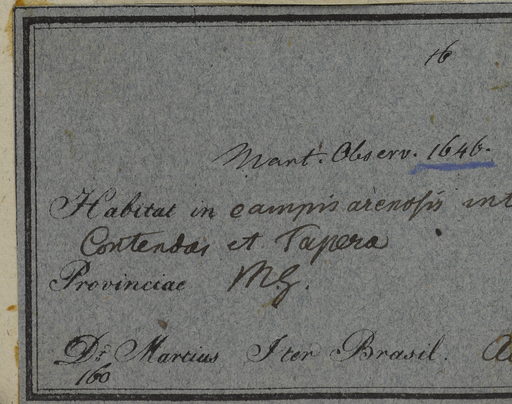 16
Mart. Observ. 1646.
Habitat in campis arenosis int
Contendas et Tapera
Provinciae MG.
Dr. Martius Iter Brasil.
160